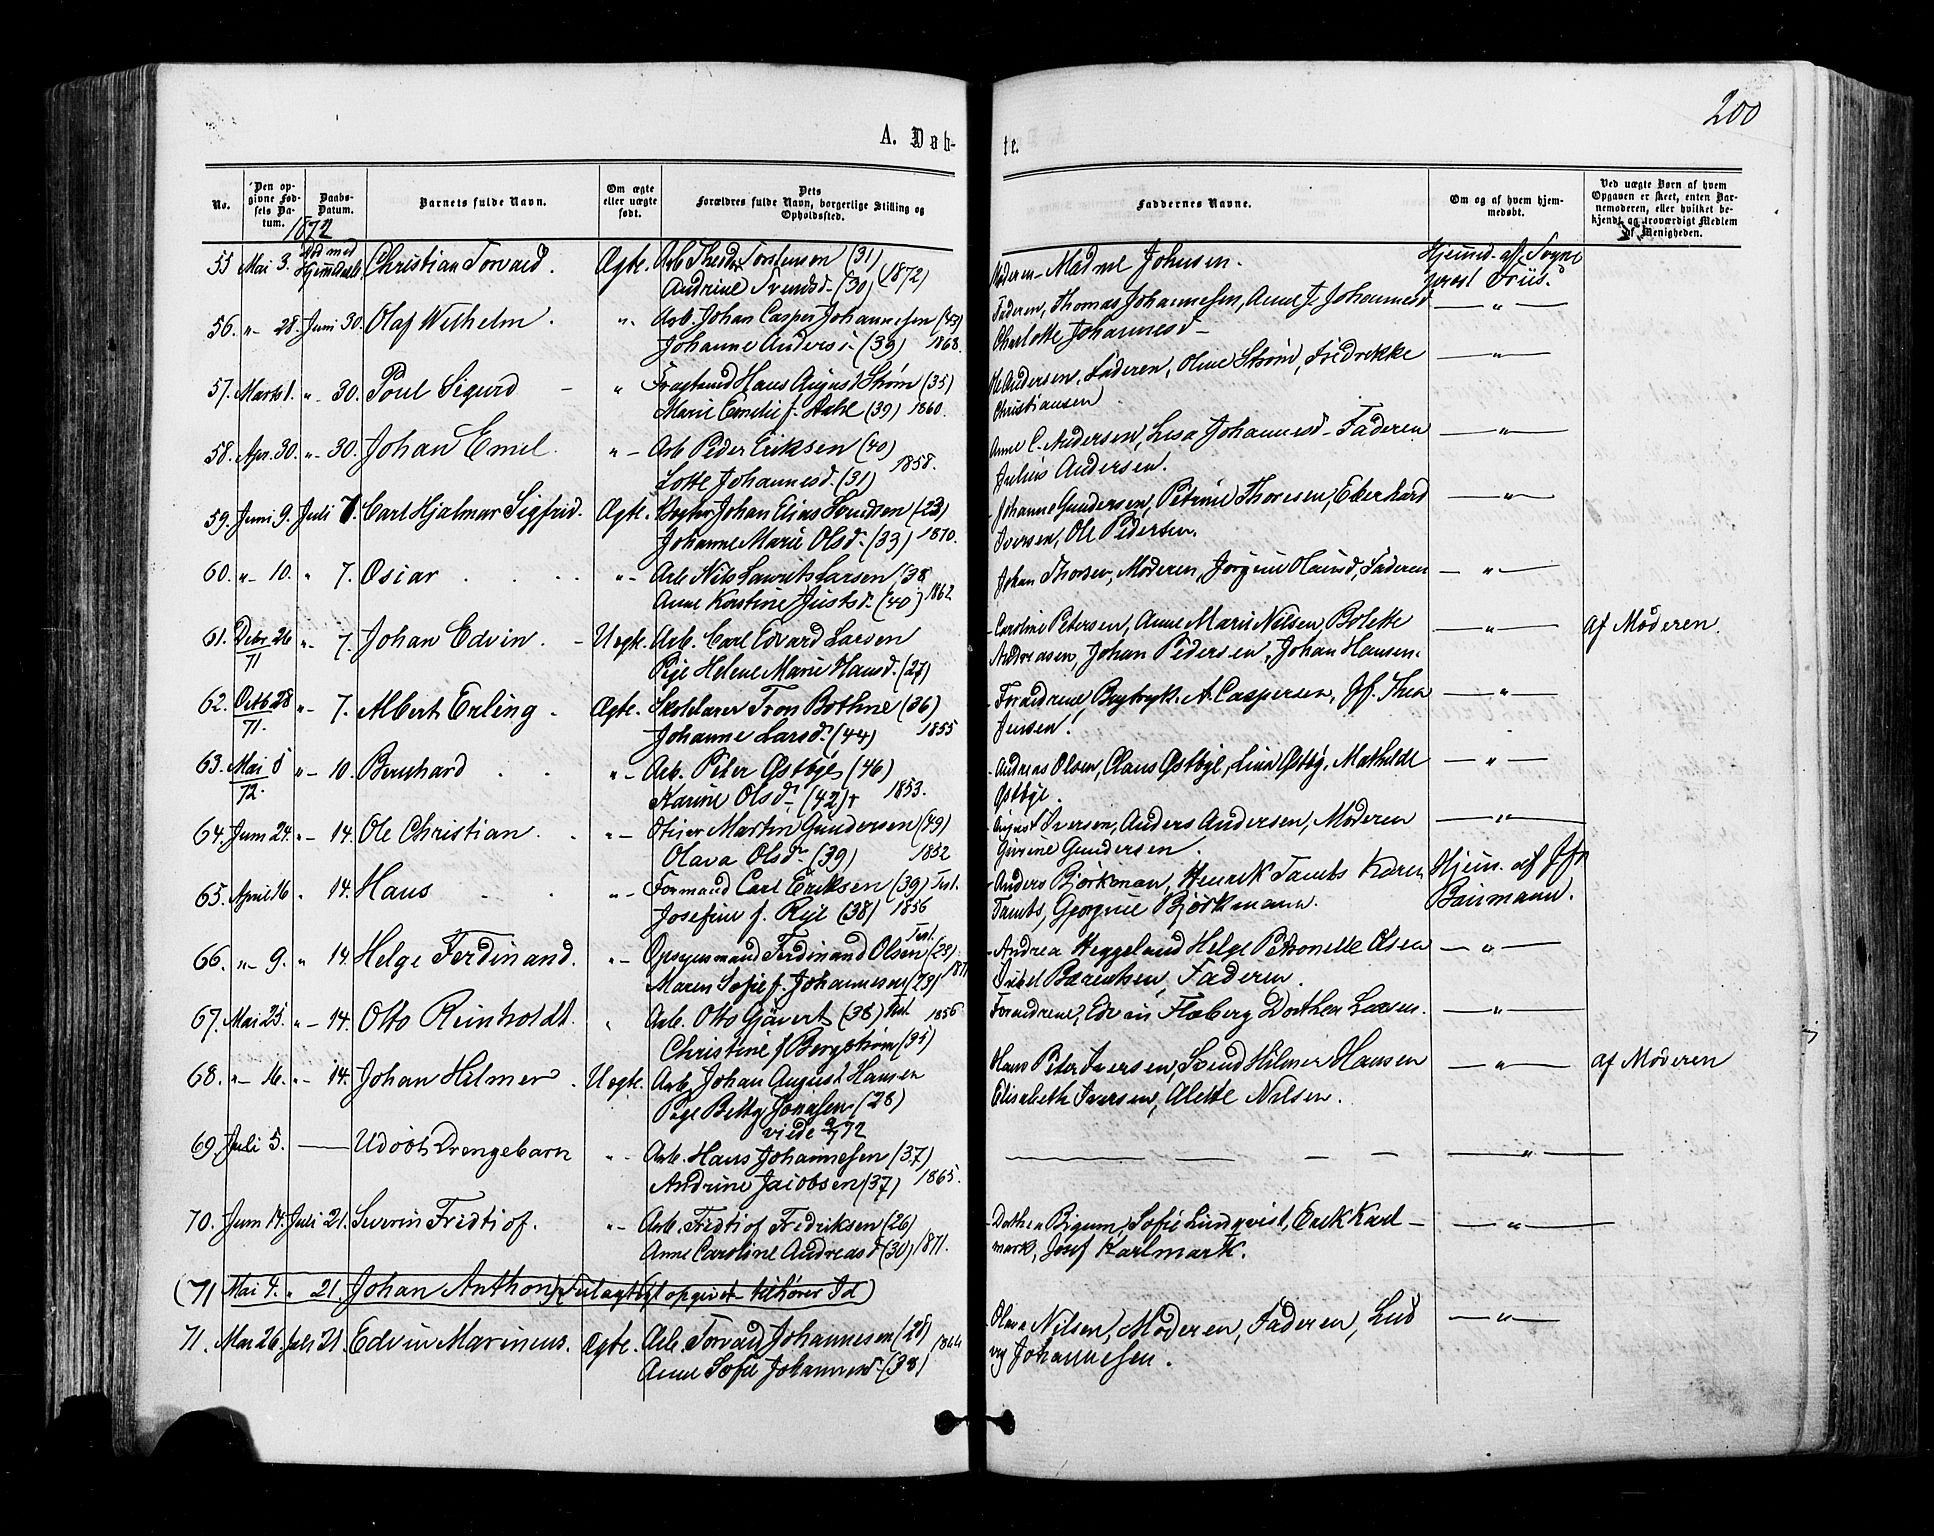 200
A. Døb-
te.
No.
Den op-
givne Fød-
sels Da-
tum.
Daabs-
Datum.
Barnets fulde Navn.
Om ægte
eller uægte
født.
Dets
Forældres fulde Navn, borgerlige Stilling og
Opholdssted.
Faddernes Navne.
Om og af hvem hjem-
medøbt.
Ved uægte Børn af hvem
Opgaven er skeet, enten Bar-
nemoderen, eller hvilket be-
kjendt og troværdigt Medlem
af Menigheden.
1872
55 Mai 3. Død med Hjemmedaab Christian Torvald. Ægte. Arb. Torstensen (31) Moderen Madme Johnsen. Hjemmed. af Sogne
Andrine Svendsd. (30) (1872) prest Friis.
56. " 28. Juni 30. Olaf Wilhelm. " Arb. Johan Casper Johannesen Faderen, Thomas Johannesen, Anne J. Johannesd "
Johanne Andersd. (39) 1868. Charlotte Johannesd
57. Marts 1. " 30. Poul Sigurd " Hans August Strøm (35) Andersen, Faderen, Oline Strøm, Fredrekke "
Marie Emelie f. Dahl (39) 1860. Christiansen
58. Apr. 30. " 30. Johan Emel. " Arb Peder Eriksen (40) Anne C. Andersen, Lisa Johannesd Faderen "
Lotte Johannesd. (31) 1858. Julius Andersen.
59. Juni 9. Juli 7. Carl Hjalmar Sigfrid. Ægte. Johan Elias Svendsen (23) Johanne Gundersen, Petrine Thoresen, Eberhard "
Johanne Marie Olsd. (33) 1870. Iversen, Ole Pedersen.
60. " 10. " 7. Oscar " Arb Nils Laurits Larsen (38 Johan Thorsen, Moderen, Jørgine Olausd, Faderen "
Anne Kirstine Justsd. (40) 1862
61. Debr 26/71 " 7. Johan Edvin. Uægte. Arb. Carl Edvard Larsen Caroline Petersen, Anne Marie Nilsen, Bolette " af Moderen.
Pige Helene Marie Hansd. (27) Andreasen, Johan Pedersen, Johan Hansen.
62. Octb 28/71. " 7. Albert Erling. Ægte. Skolelærer Tron Bothne (36) Forældrene, A. Caspersen, Jf. Thea "
Johanne Larsd. (44) 1855 Jensen.
63. Mai 5/72. " 10. Bernhard " Arb. Peter Østbye (46) Andreas Olsen, Claus Østbye, Lina Østby, Mathilde "
Karine Olsd. (42) 1853. Østbye.
64. Juni 24. " 14. Ole Christian. " Martin Gundersen (49) August Iversen, Anders Andersen, Moderen "
Olava Olsd. (39) 1852 Gurine Gundersen.
65. April 16 " 14. Hans " Formand Carl Eriksen (39) Tist. Anders Bjørkman, Henrik Tambs Karen Hjem. af Jfr
Josefine f. Rye (38) 1856 Tambs, Georgine Bjørkmann. Baumann.
66. " 9. " 14. Helge Ferdinand. " Opsynsmand Ferdinand Olsen (28) Tist. Andrea Heggelund Helge Petronelle Olsen "
Maren Sofie f. Johannesen (29) 1871 Bærentsen, Faderen.
67. Mai 25. " 14. Otto Reinholdt. " Arb. Otto Gjävert (38) Tist 1856 Forældrene, Edvin Floberg Dorthea Larsen. "
Christine f. Bergstrøm (35)
68. " 16. " 14. Johan Hilmer. Uægte. Arb. Johan August Hansen Hans Peter Iversen, Svend Hilmer Hansen " af Moderen
Pige Betty Jonassen (28) Elisabeth Iversen, Alette Nilsen.
viede 72
69. Juli 5. Udøbt Drengebarn " Arb. Hans Johannesen (37) "
Andrine Jacobsen (37) 1865.
70. Juni 14. Juli 21. Severin Fredtiof. " Arb. Fredtiof Fredriksen (26) Dorthea Bigum, Sofie Lindqvist, Erik Karl- "
Anne Caroline Andreasd (30) 1871. mark, Josef Karlmark.
(71 Mai 4. " 21. Johan Anthon opgivet tilhører Id)
71. Mai 26. Juli 21. Edvin Marinius. Ægte. Arb. Torvald Johannesen (28) Olava Nilsen, Moderen, Faderen, Lud "
Anne Sofie Johannesd. (38) vig Johannesen.